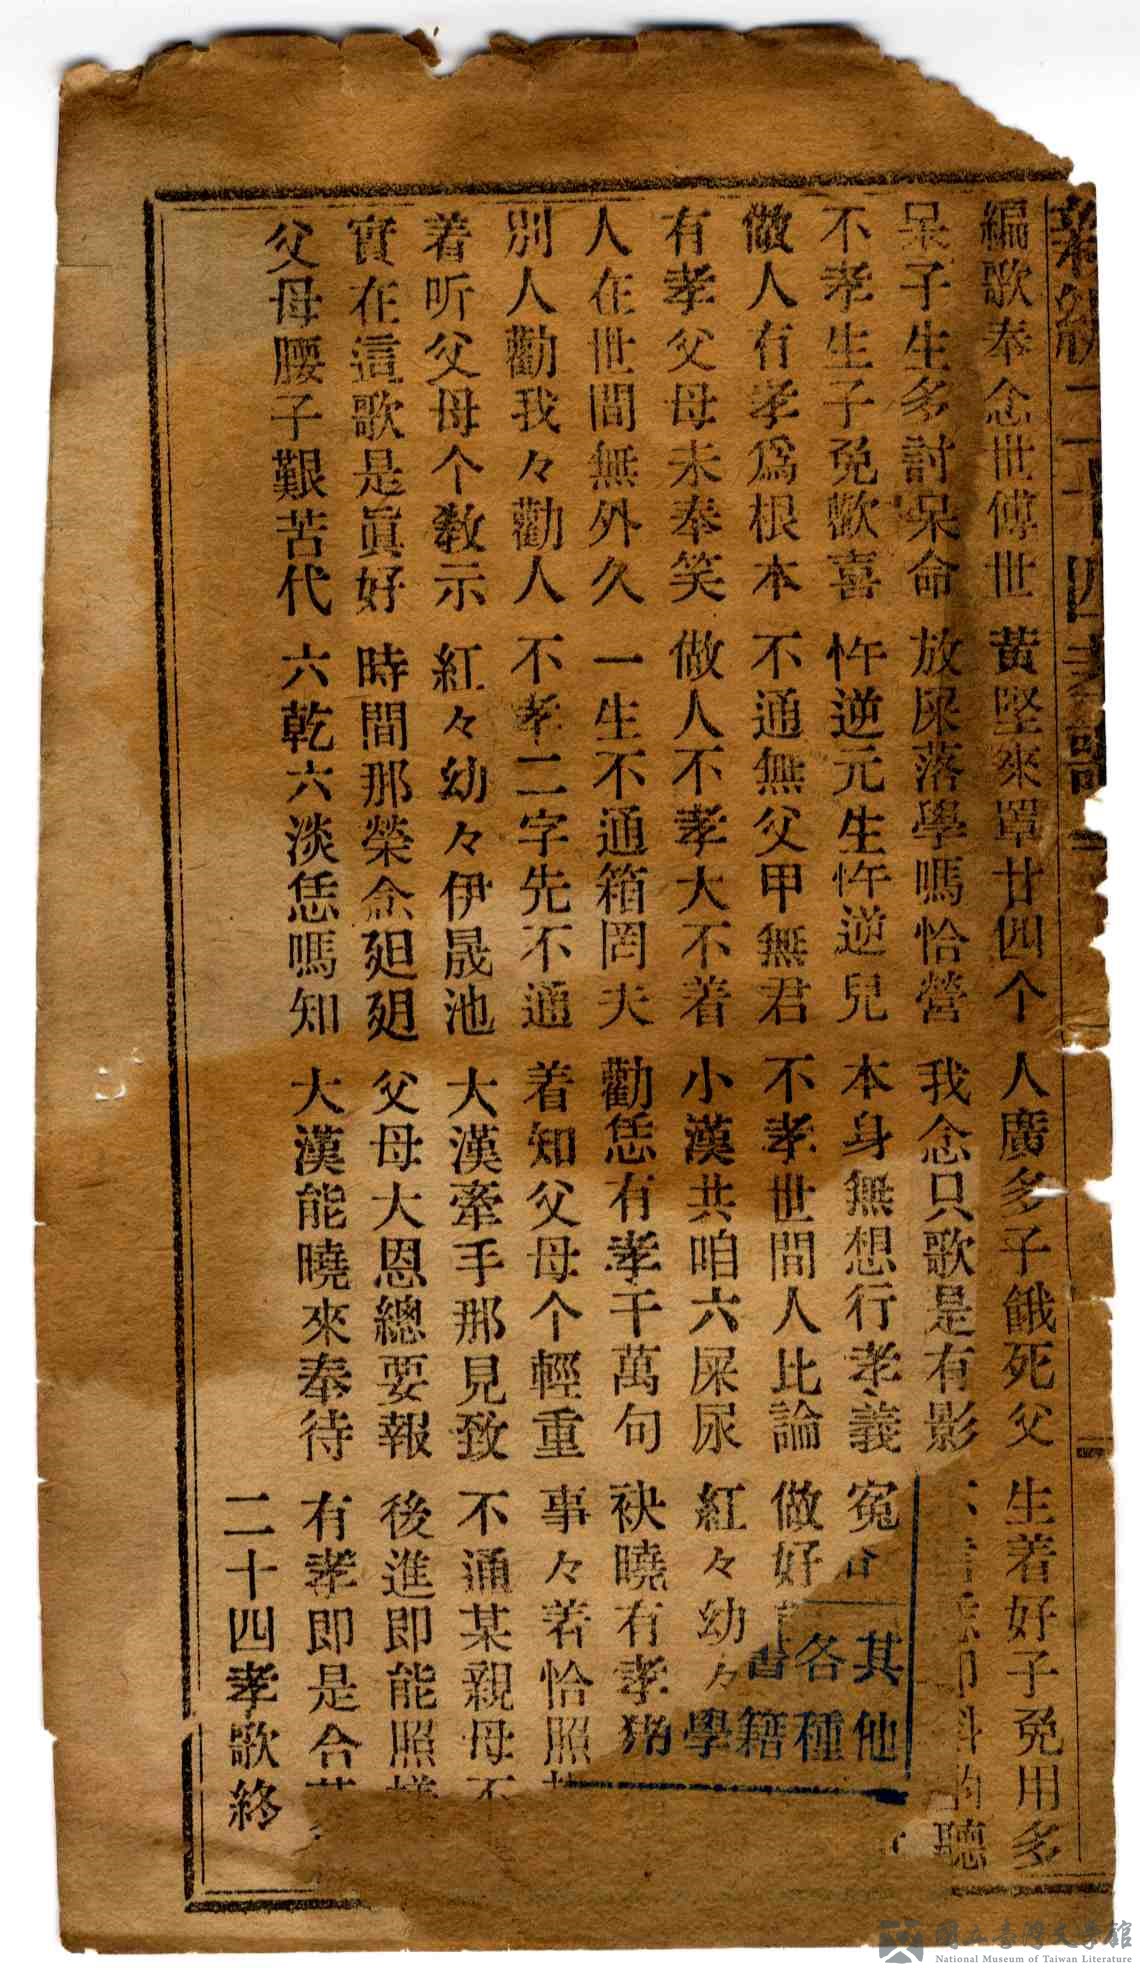 新刻二十四孝歌
編歌奉念世傳世 黃堅來罩廿四个 人廣多子餓死父 生着好子免用多
呆子生多討呆命 放屎落學嗎恰營 我念只歌是有影 聽
不孝生子免歡喜 忤逆元生忤逆兒 本身無想行孝義 冤
做人有孝爲根本 不通無父甲無君 不孝世間人比論 做好
有孝父母未奉笑 做人不孝大不着 小漢共咱六屎尿 紅々幼々
人在世間無外久 一生不通箱罔夫 勸恁有孝千萬句 袂曉有孝猪
別人勸我々勸人 不孝二字先不通 着知父母个輕重 事々若恰照
着听父母个教示 紅々幼々伊晟池 大漢牽手那見致 不通某親母不
實在這歌是眞好 時間那榮念𢌞𢌞 父母大恩總要報 後進即能照樣
父母腰子艱苦代 六乾六淡恁嗎知 大漢能曉來奉待 有孝即是合
二十四孝歌終
其他
各種
書籍
學
國立臺灣文學館
National Museum of Taiwan Literature